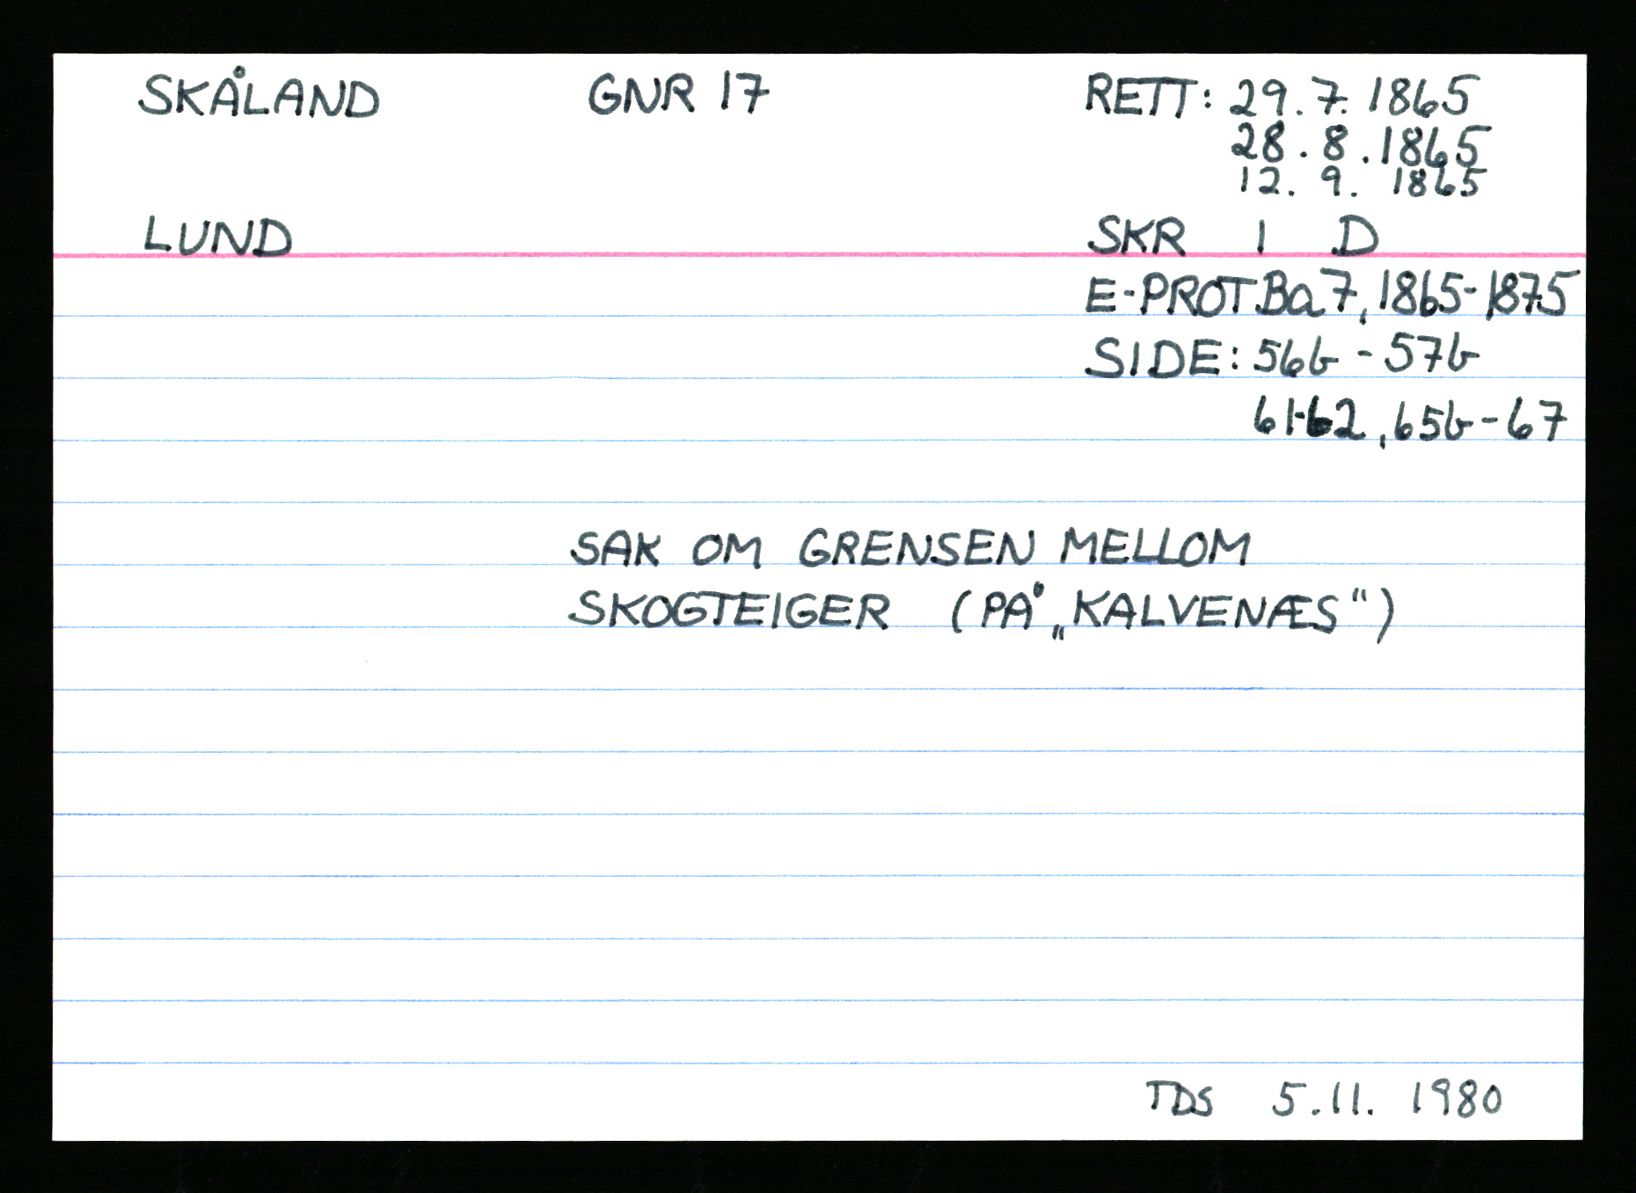 SKÅLAND GNR 17 RETT: 29.7.1865
28.8.1865
12.9.1865
LUND SKR 1 D
E-PROT.Ba 7, 1865-1875
SIDE: 56b - 57b
61-62, 65b - 67
SAK OM GRENSEN MELLOM
SKOGTEIGER (PÅ „KALVENÆS“)
TDS 5.11.1980